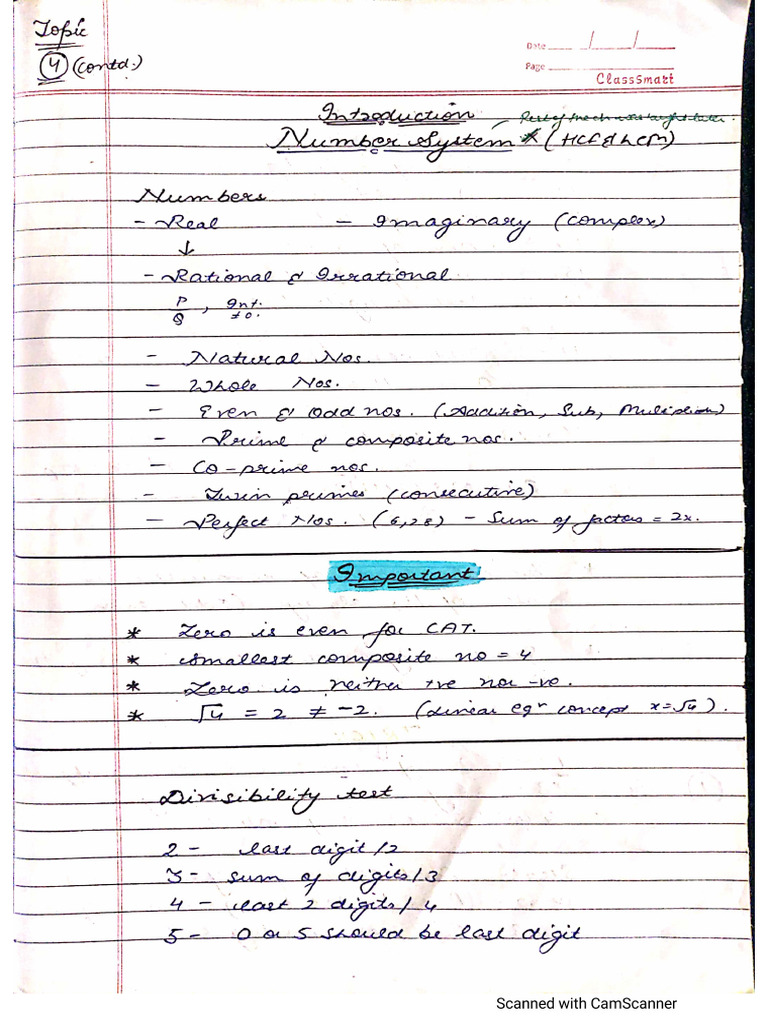 Topic
4 (contd.)
Date ____ / ____ / ____
Page ____
ClassSmart
Introduction
Number System * (HCF & LCM)
Numbers
- Real - Imaginary (complex)
↓
- Rational & Irrational
P/Q , Int. ≠ 0.
- Natural Nos.
- Whole Nos.
- Even & Odd nos. (Addition, Sub, Multiplication)
- Prime & composite nos.
- Co-prime nos.
- Twin primes (consecutive)
- Perfect Nos. (6,28) - Sum of factors = 2x.
Important
* Zero is even for CAT.
* Smallest composite no = 4
* Zero is neither +ve nor -ve.
* √4 = 2 ≠ -2. (Linear eqn concept x=√4).
Divisibility test
2 - last digit/2
3 - sum of digits/3
4 - last 2 digits/4
5 - 0 or 5 should be last digit
Scanned with CamScanner